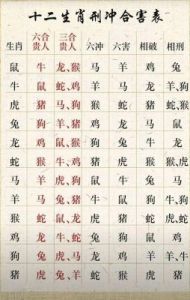 十二生肖刑冲合害表
生肖 六合贵人 三合贵人 六冲 六害 相破 相刑
鼠 牛 龙、猴 马 羊 鸡 兔
牛 鼠 蛇、鸡 羊 马 龙 狗
虎 猪 马、狗 猴 蛇 猪
兔 狗 羊、猪 鸡 龙 马 鼠
龙 鸡 鼠、猴 狗 兔 牛 龙
蛇 猴 牛、鸡 猪 虎 猴 虎
马 羊 虎、狗 鼠 牛 兔 马
羊 马 兔、猪 牛 鼠 狗
猴 蛇 鼠、龙 虎 猪 蛇 虎
鸡 龙 牛、蛇 兔 狗 鼠 鸡
狗 兔 虎、马 龙 鸡 羊
猪 虎 兔、羊 蛇 猴 虎 猪